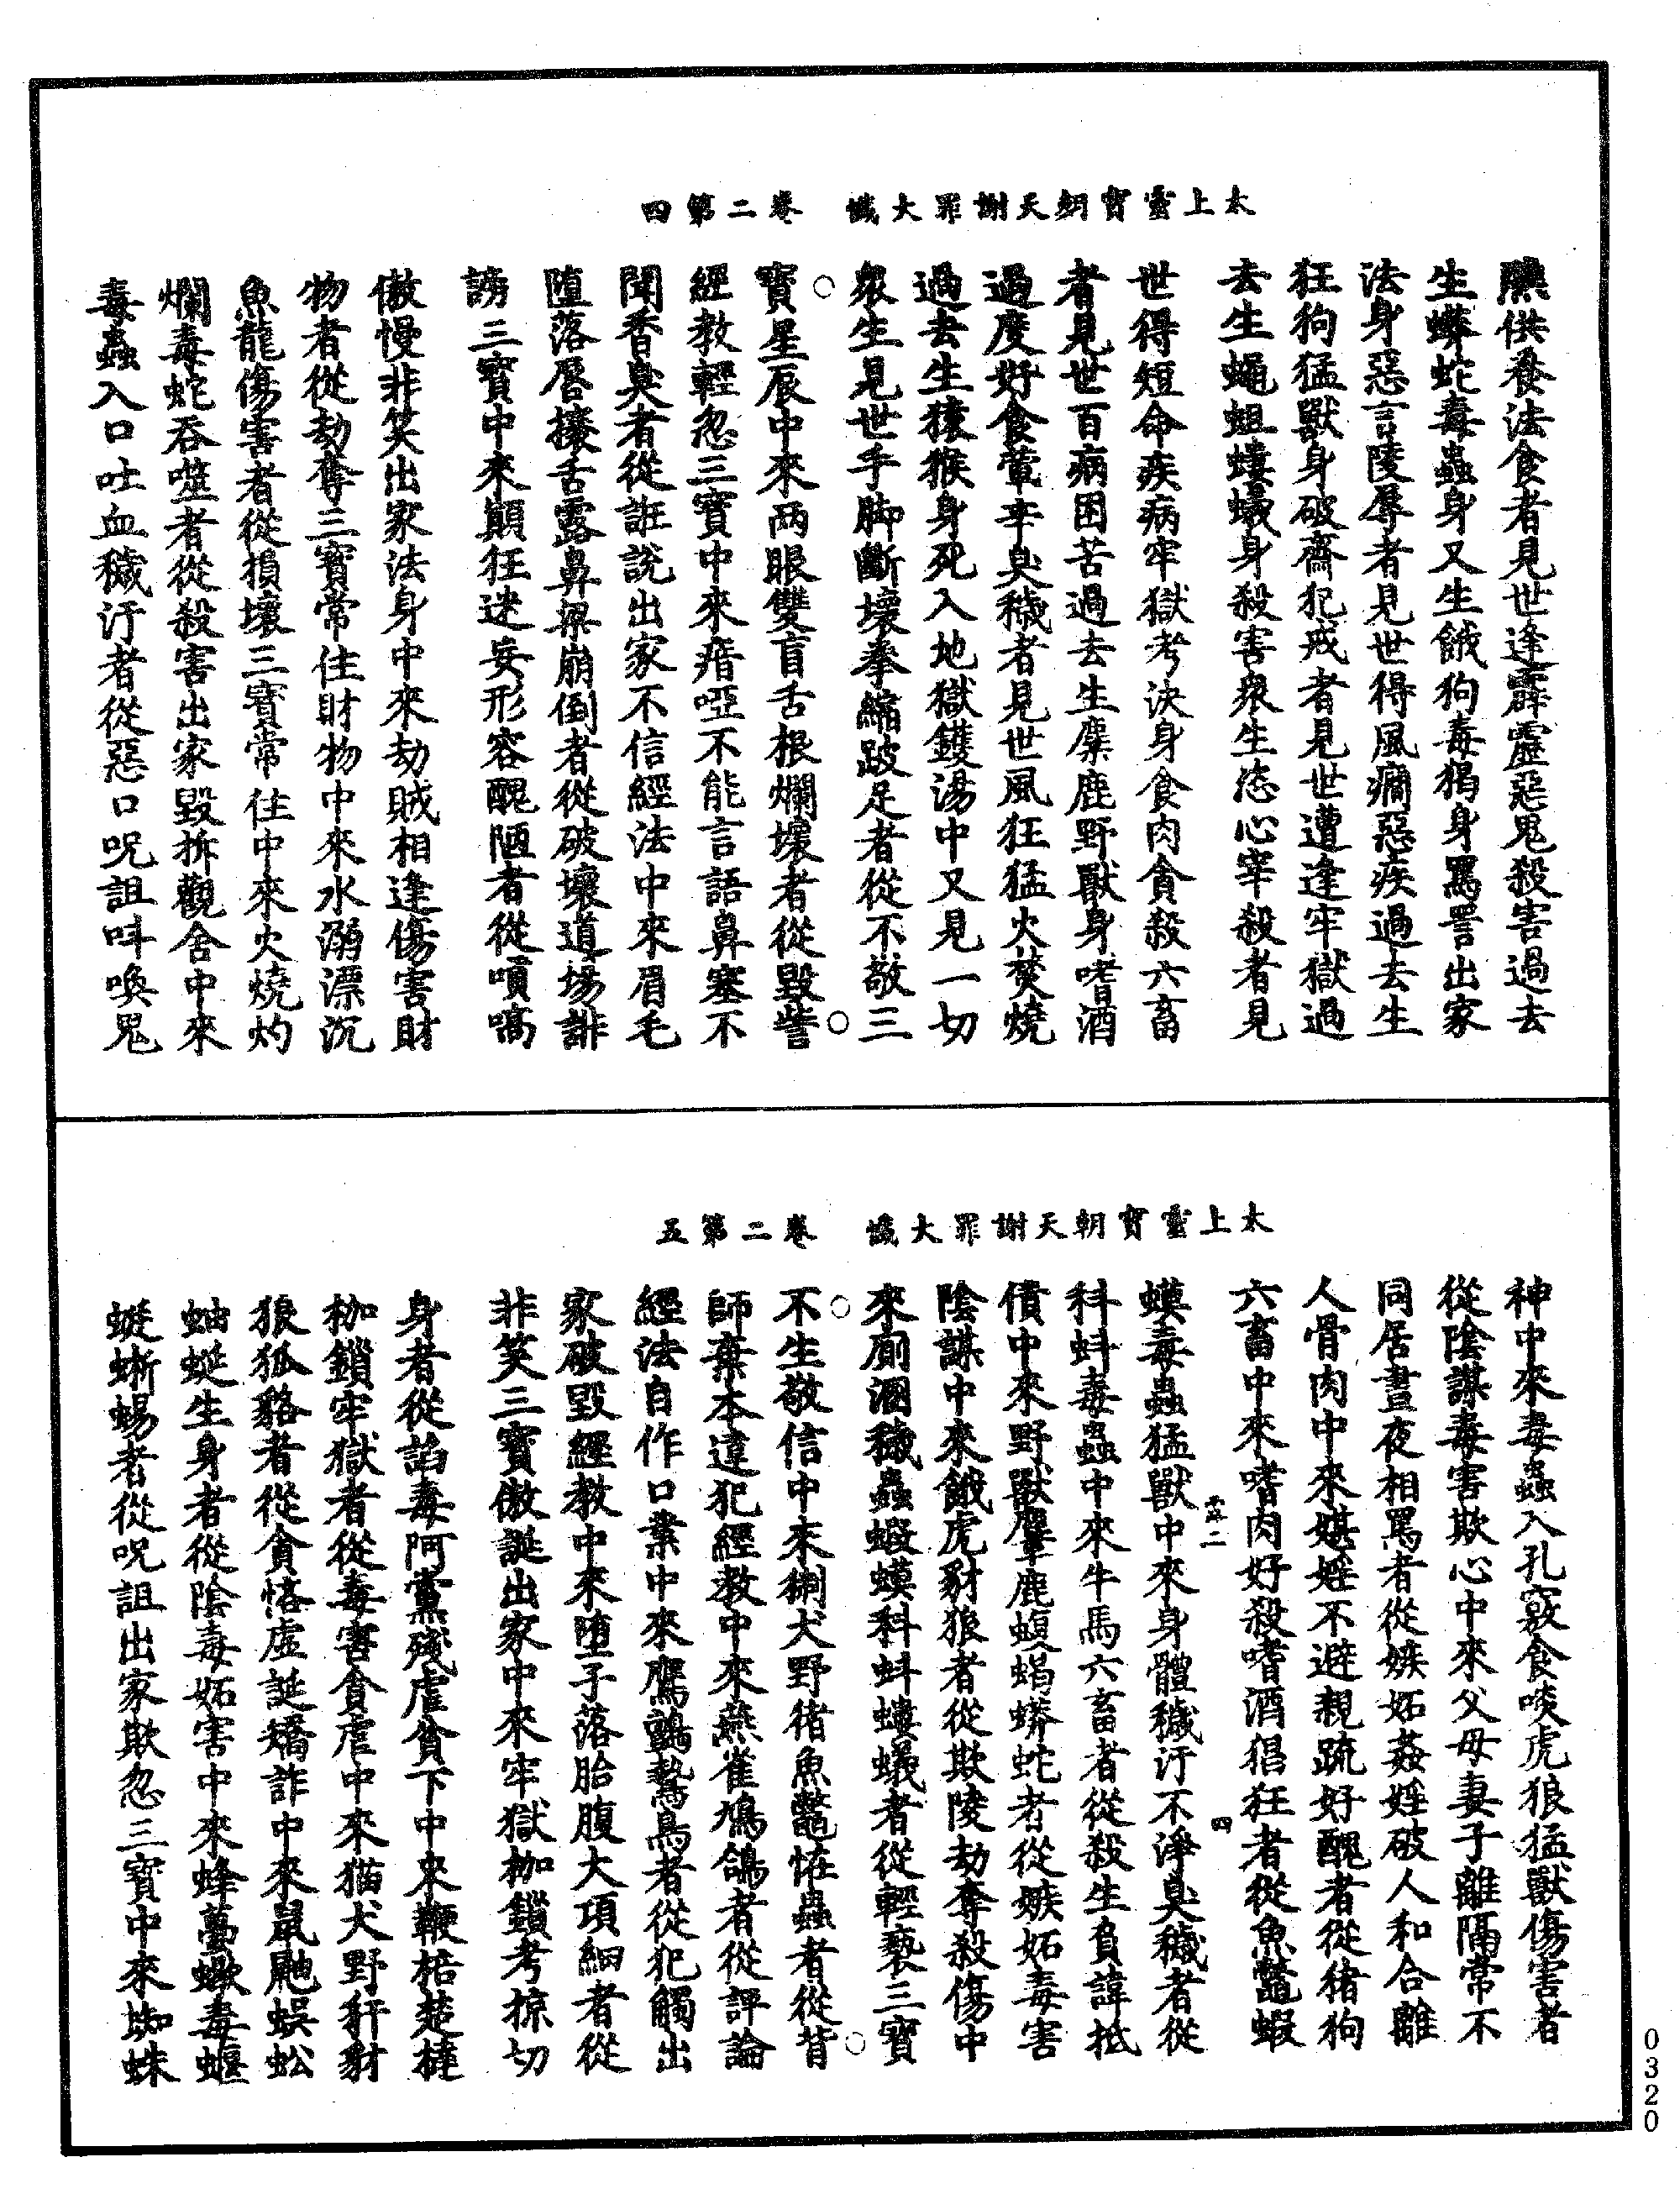 太上靈寶朝天謝罪大懺　卷二第四
燕供養法食者見世逢霹靂惡鬼殺害過去
生蟒蛇毒蟲身又生餓狗毒猲身罵詈出家
法身惡言陵辱者見世得風癎惡疾過去生
狂狗猛獸身破齋犯戒者見世遭逢牢獄過
去生蠅蛆螻蟻身殺害衆生恣心宰殺者見
世得短命疾病牢獄考決身食肉貪殺六畜
者見世百病困苦過去生麋鹿野獸身嗜酒
過度好食葷辛臭穢者見世風狂猛火焚燒
過去生猿猴身死入地獄鑊湯中又見一切
衆生見世手脚斷壞拳縮跛足者從不敬三
寶星辰中來两眼雙盲舌根爛壞者從毀訾
經教輕忽三寶中來瘖啞不能言語鼻塞不
聞香臭者從誑說出家不信經法中來眉毛
墮落唇搴舌露鼻梁崩倒者從破壞道場誹
謗三寶中來顚狂迷妄形容醜陋者從嗔嗃
傲慢非笑出家法身中來劫賊相逢傷害財
物者從劫奪三寶常住財物中來水溺漂沉
魚龍傷害者從損壞三寶常住中來火燒灼
爛毒蛇吞噬者從殺害出家毀拆觀舍中來
毒蟲入口吐血穢汙者從惡口呪詛呌喚鬼
太上靈寶朝天謝罪大懺　卷二第五
神中來毒蟲入孔竅食啖虎狼猛獸傷害者
從陰謀毒害欺心中來父母妻子離隔常不
同居晝夜相罵者從嫉妬姦婬破人和合離
人骨肉中來媅婬不避親疏好醜者從猪狗
六畜中來嗜肉好殺嗜酒猖狂者從魚鼈蝦
蟆毒蟲猛獸中來身體穢汙不淨臭穢者從
科蚪毒蟲中來牛馬六畜者從殺生負諱抵
債中來野獸麞鹿蝮蝎蟒蛇者從嫉妬毒害
陰謀中來餓虎豺狼者從欺陵劫奪殺傷中
來廁溷穢蟲蝦蟆科蚪螻蟻者從輕褻三寶
不生敬信中來猘犬野猪魚鼈恠蟲者從背
師棄本違犯經教中來燕雀鳩鴿者從評論
經法自作口業中來鷹鸇鷙鳥者從犯觸出
家破毀經教中來墮子落胎腹大項細者從
非笑三寶傲誕出家中來牢獄枷鎖考掠切
身者從諂毒阿黨殘虐貧下中來鞭棓楚撻
枷鎖牢獄者從毒害貪虐中來猫犬野豻豺
狼狐貉者從貪悋虛誕矯詐中來鼠虺蜈蚣
蚰蜒生身者從陰毒妬害中來蜂蠆蠍毒蝘
蜓蜥蜴者從呪詛出家欺忽三寶中來蜘蛛
四
0320